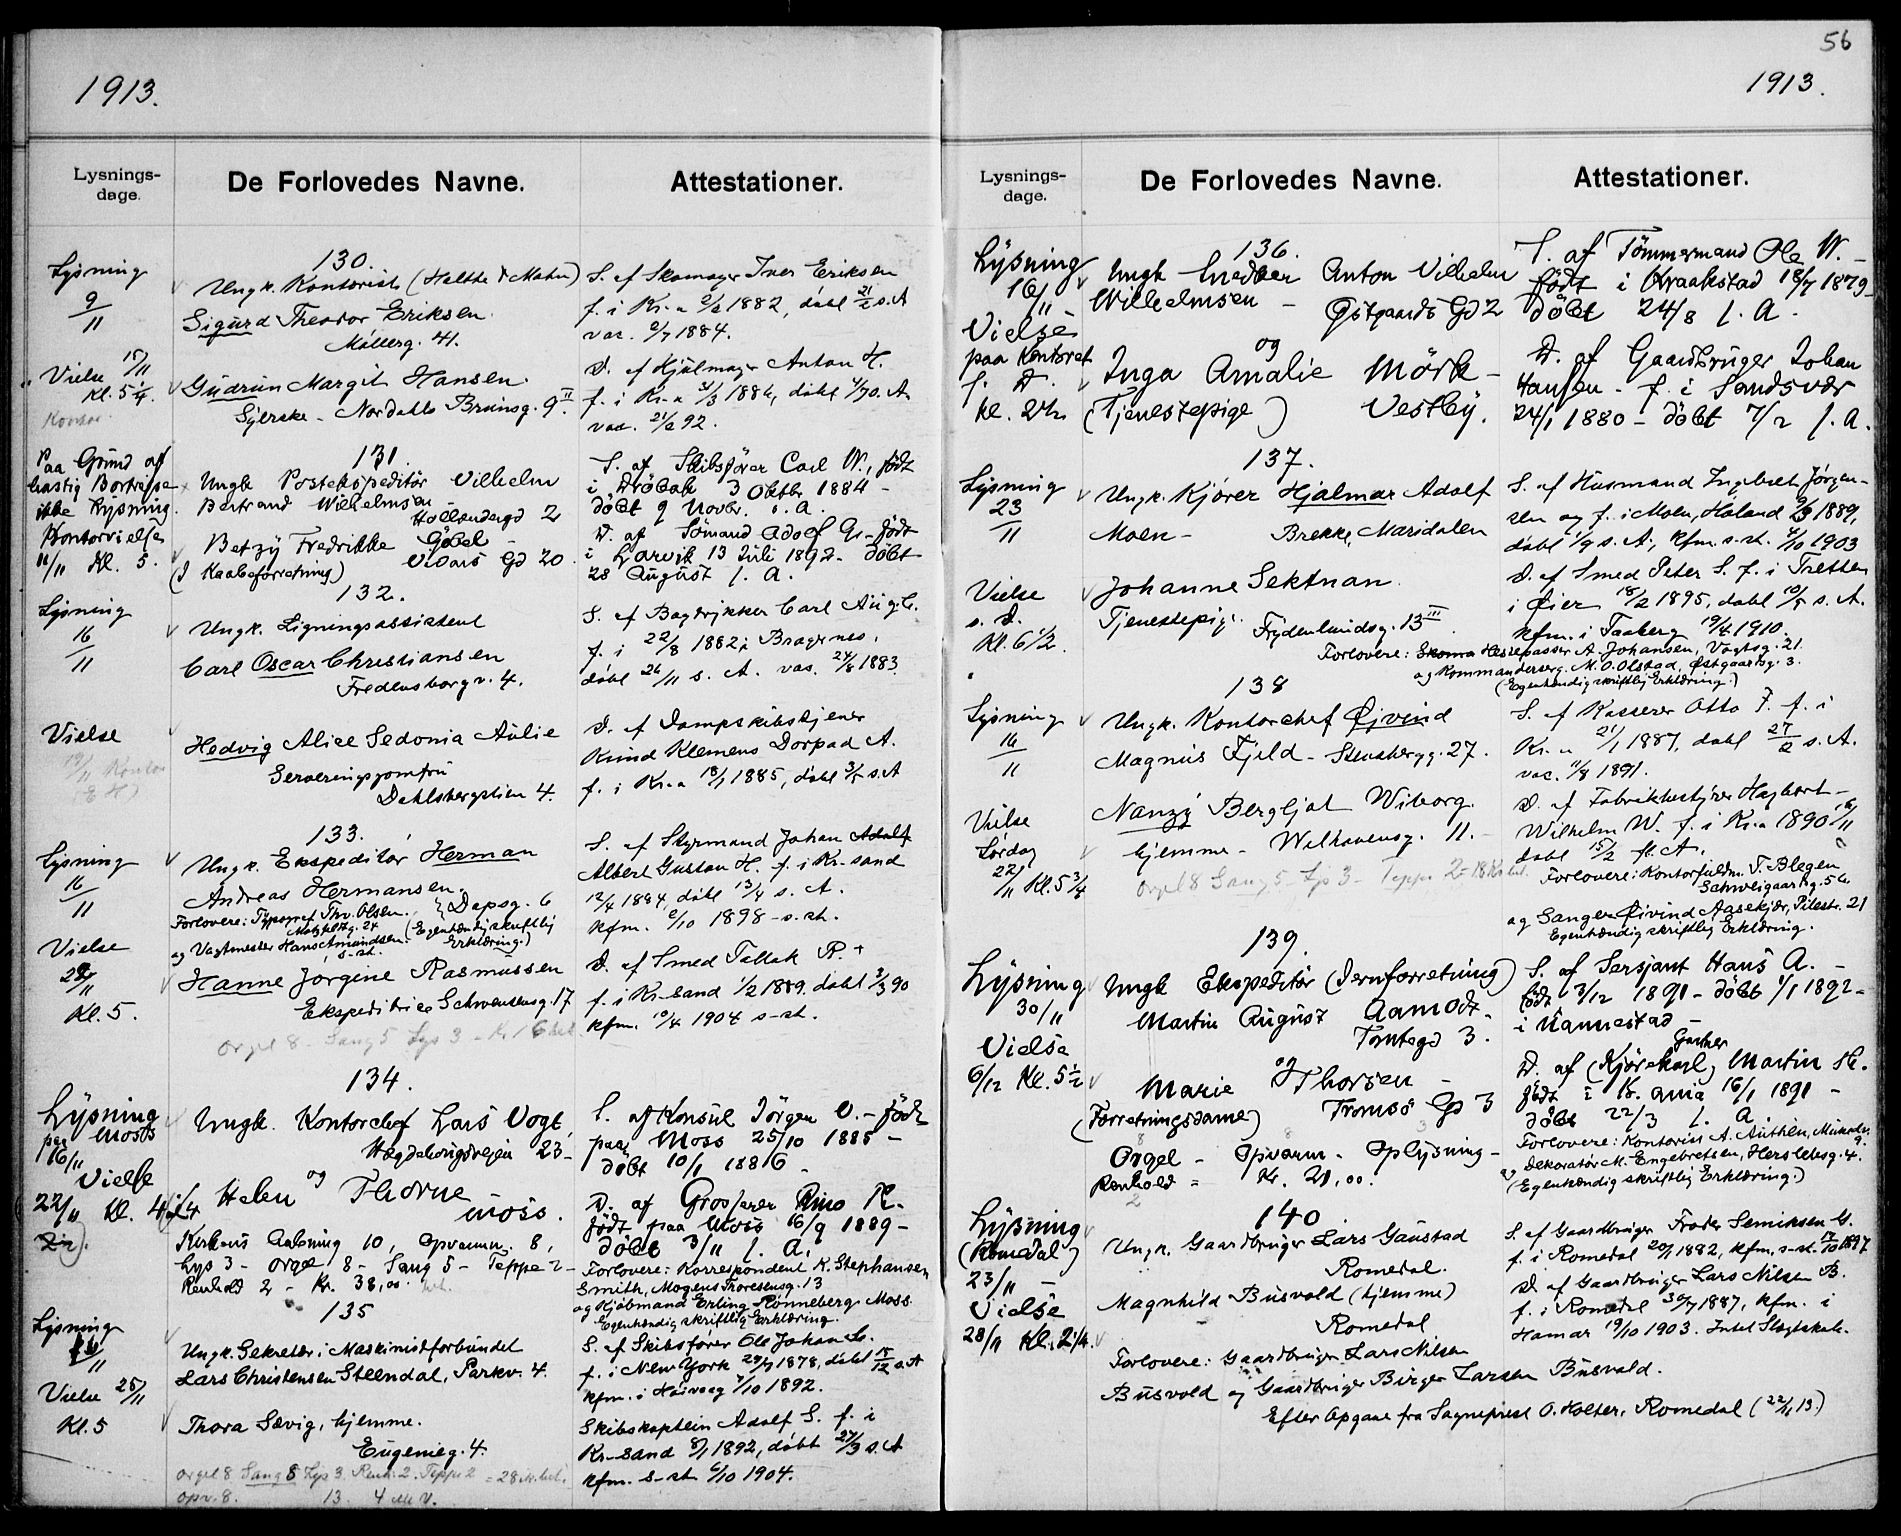 1913.
Lysnings-
dage.
De Forlovedes Navne.
Attestationer.
Lysning
9
11
130.
Ungk. Kontorist (Halthe & Mahn)
Sigurd Theodor Eriksen.
Møllerg. 41.
S. af Skomager Iver Eriksen
f. i Kr.a 2/2 1882, døbt 21/5 s. A
vac. 2/7 1884.
Vielse 17/11
Kl. 5 1/4.
Gudrun Margit Hansen.
Syerske - Nordahls Brunsg. 9 II.
D. af Hjulmager Anton H.
f. i Kr.a 31/3 1886, døbt
vac. 21/2 92.
Paa Grund af
hastig Bortrejse
ikke Lysning.
Kontorvielse
11/11 Kl. 5.
131.
Ungk Postekspeditør Vilhelm
Bertrand Wilhelmsen
Hollendergd 2
Betzy Fredrikke Gjøel -
(I Kaabeforretning) Vidars Gd 20.
S. af Skibsfører Carl W., født
i Drøbak 3 Oktbr 1884 -
døbt 9 Novbr. s. A.
D. af Sömand Adolf G. - født
i Larvik 13 Juli 1892 - døbt
28 August s. A.
Lysning
16
11
132.
Ungk. Ligningsassistent
Carl Oscar Christiansen
Fredensborgv. 4.
S. af Bogtrykker Carl Aug. C.
f. i 22/8 1882 i Bragernes,
døbt 26/11 s. A. vac. 24/8 1883.
Vielse
19/11 Kontor
Hedvig Alice Sedonia Aulie
Serveringsjomfru
Dahlsbergstien 4.
D. af Dampskibstjener
Knud Klemens Dorpad A.
f. i Kr.a 18/1 1885, døbt 3/5 s. A
Lysning
16
11
133.
Ungk. Ekspeditør Herman
Andreas Hermansen.
Dopsg. 6
Forlovere: Typograf Thv. Olsen,
og Vagtmester Hans Amundsen s-st.
(Egenhændig skriftlig
Erklæring.)
S. af Styrmand Johan Adolf
Albert Gustav H. f. i Kr-sand
12/4 1884, døbt 13/4 s. A.
kfm. 2/10 1898 - s. st.
Vielse
11
Kl. 5.
Hanne Jørgine Rasmussen
Ekspeditrice Schwensensg. 17
D. af Smed Tallak R. +
f. i Kr-sand 1/2 1889. døbt 3/3 90
kfm. 10/4 1904 s-st.
Orgel 8 - Sang 5 Lys 3 -
134.
Lysning
paa Moss
16/11
Vielse
22/11 Kl. 4 1/4
Ungk. Kontorchef Lars Vogt,
Hægdehougsvejen 23 -
og
Helen Thorne
Moss.
Kirkens Aabning 10, Opvarmn. 8,
Lys 3 - Orgel 8 - Sang 5 - Teppe 2 -
Renhold 2 - Kr. 38,00
S. af Konsul Jörgen V. - født
paa Moss 25/10 1885 -
døbt 10/1 1886 -
D. af Grosserer Rino R.
født paa Moss 16/9 1889 -
döbt 3/11 s. A.
Forlovere: Korrespondent K. Stephansen
Smith, Mogens Thoresensg. 13
og Kjøbmand Erling Rönneberg Moss.
Egenhændig skriftlig Erklæring.
Lysning
11
135
Ungk. Sekretær i Maskinistforbundet
Lars Christensen Steendal, Parkv. 4.
S. af Skibsfører Ole Johan
f. i New York 29/9 1878, døbt 15/12 s. A
kfm. i Høivaag 2/10 1892.
Vielse 25/11
Kl. 5
Thora Sævig, hjemme.
Eugenieg. 4.
Skibskaptein Adolf S. f. i
Kr-sand 8/1 1892, døbt 27/3 s. A
kfm. s-st. 2/10 1904.
Orgel 8 Sang 5 Lys 3. Renh. 2. Teppe 2 = 28
opv. 8. 13.
56
1913.
Lysnings-
dage.
De Forlovedes Navne.
Attestationer.
Lysning
16/11
Vielse
paa Kontoret
s. D.
Kl. 2
136.
Ungk Snedker Anton Vilhelm
Wilhelmsen - Østgaards Gd 2
og
Inga Amalie Mörk -
(Tjenestepige) Vestby.
S. af Tömmermand Ole W. -
født i Kraakstad 18/7 1879 -
døbt 24/8 s. A.
D. af Gaardbruger Johan
Hansen - f. i Sandsvær
24/1 1880 - døbt 7/2 s. A.
Lysning
23
11
137.
Ungk. Kjører Hjalmar Adolf
Moen - Brekke, Maridalen
S. af Husmand Ingebret Jørgen-
sen og f. i Moen, Høland 1889,
døbt 1/9 s. A., kfm. s-st. 4/10 1903
Vielse
s. D.
Kl. 6 1/2.
Johanne Sektnan
Tjenestepige. Frydenlundsg. 13 III
D. af Smed Peter S. f. i Tretten
i Øier 18/2 1895, døbt s. A.
kfm. i Faaberg 1910.
Forlovere: Hestepasser A. Johansen, Vogtsg. 21
og Kommandersergt. M. O. Olstad, Østgaardsg. 3.
(Egenhændig skriftlig Erklæring.)
Lysning
16
11
138
Ungk. Kontorchef Øivind
Magnus Fjeld - Stensbergg. 27.
S. af Kasserer Otto F. f. i
Kr.a 21/1 1887, døbt 27/2 s. A.
vac. 11/8 1891.
Vielse
Lørdag
22/11 Kl. 5 3/4
Nanzy Bergljot Wiborg.
hjemme - Welhavensg. 11. -
D. af Fabrikbestyrer Hagbart
Wilhelm W. f. i Kr.a 1890
døbt 15/2
Orgel 8 Sang 5 - Lys 3 - Teppe 2 = 18 Kr.
Forlovere: Kontorfuldm. T. Blegen
Schweigaardsg. 56
og Sanger Øivind Aasekjær, Pilestr. 21
Egenhændig skriftlig Erklæring.
Lysning
30/11
Vielse
6/12 Kl. 5 1/2
139.
Ungk Ekspeditør (Jernforretning)
Martin August Aamodt.
Tomtegd 3.
og
Marie Thorsen -
(Forretningsdame) Tromsö Gd 3
Orgel - Opvarm - Oplysning -
Renhold = Kr. 21,00.
S. af Sersjant Hans A. -
født 3/12 1891 - døbt 1/1 1892 -
i Nannestad -
Gartner
D. af (Kjørekarl) Martin
født i Kr.ania 16/1 1891 -
døbt 22/3 s. A
Forlovere: Kontorist A. Authen,
og Dekoratør M. Engebretsen, Herslebsg. 4.
(Egenhændig skriftlig Erklæring.)
Lysning
(Romedal)
23/11 -
Vielse
28/11 Kl. 2 1/4.
140.
Ungk. Gaardbruger Lars Gaustad
Romedal.
Magnhild Busvold (hjemme)
Romedal
S. af Gaardbruger Frader Semiksen G.
f. i Romedal 20/1 1882, kfm. s-st. 17/10 1897
D. af Gaardbruger Lars Nilsen B.
f. i Romedal 30/7 1887, kfm. i
Hamar 19/10 1903. Intet Slægtskab.
Forlovere: Gaardbruger Lars Nilsen
Busvold og Gaardbruger Birger Larsen Busvold.
Efter Opgave fra Sogneprest O. Holter, Romedal (22/11 13.)